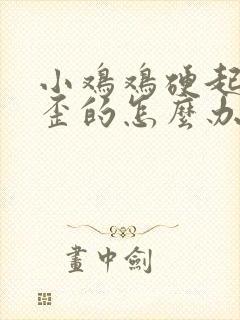 小鸡鸡硬起
歪的怎麼办
畫中劍